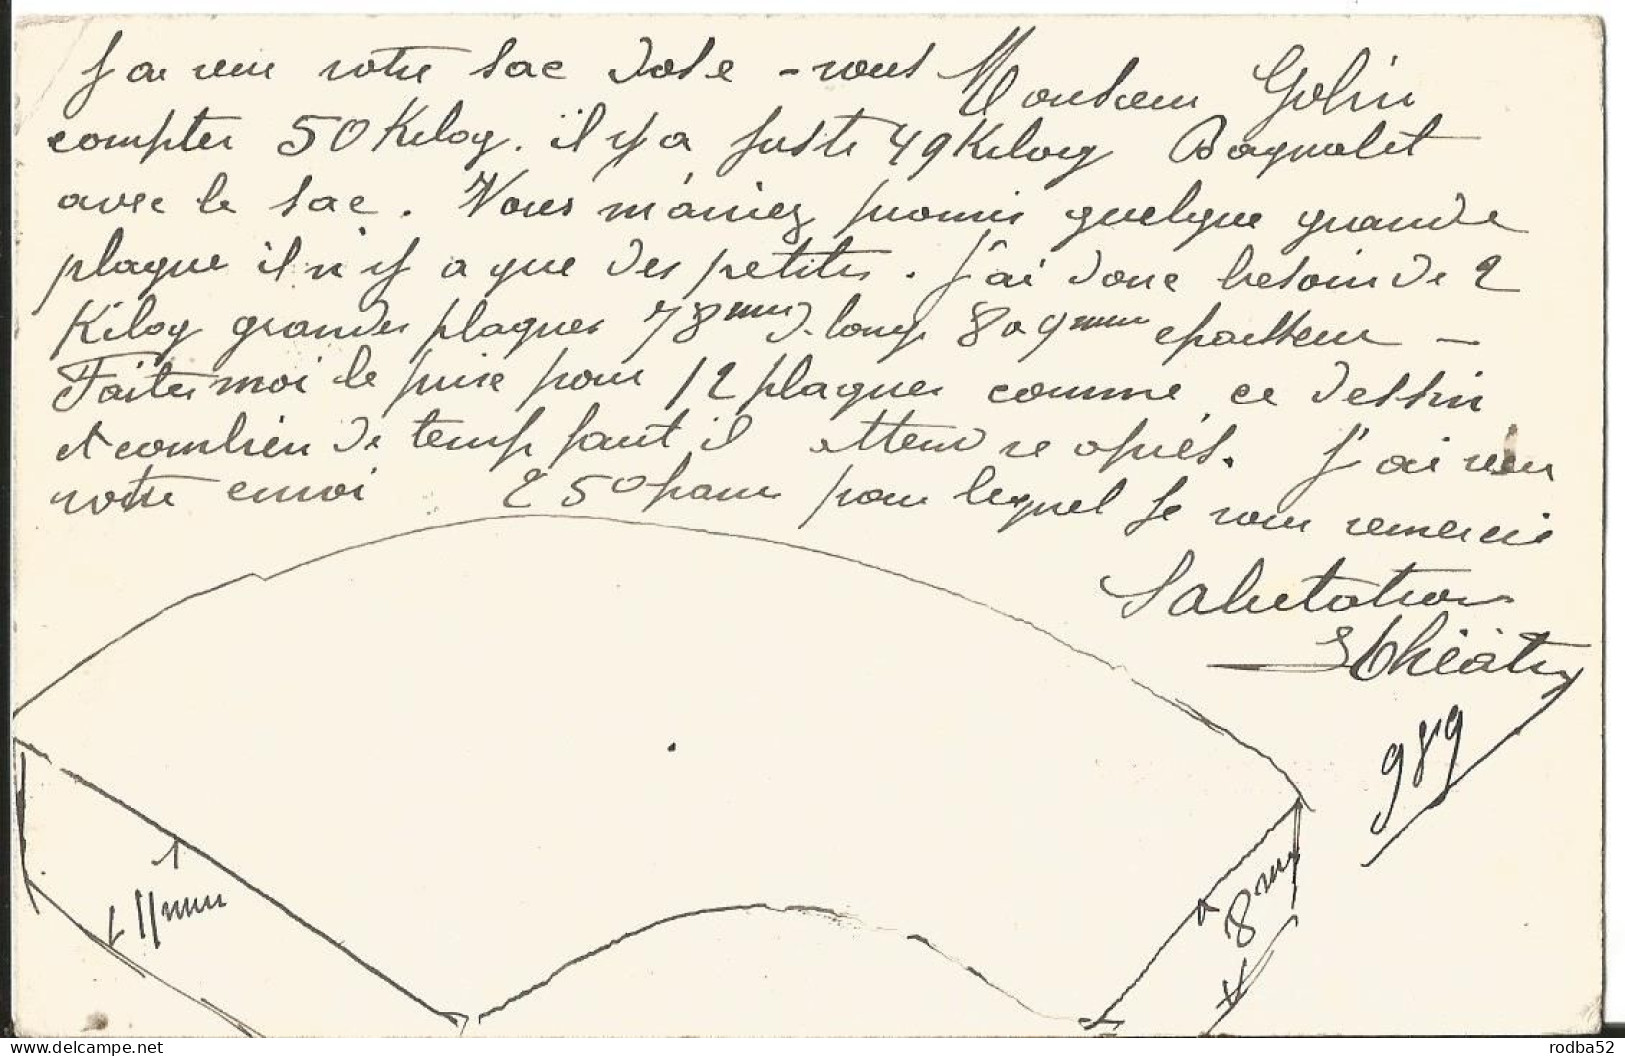 J'ai reçu votre sac d'os e - vous Monsieur Golin
compter 50 Kilog. il y a juste 49 Kilog Bagnolet
avec le sac. Vous m'aviez promis quelque grande
plaque il n'y a que des petites. J'ai donc besoin de 2
Kilog grandes plaques 78mm d. long 8 a 9mm epaisseur -
Faites moi le prix pour 12 plaques comme ce dessin
et combien de temps faut il attendre après. J'ai reçu
votre envoi 250 pour lequel je vous remercie
Salutations
989
11mm
8m
delcampe.net
rodba52